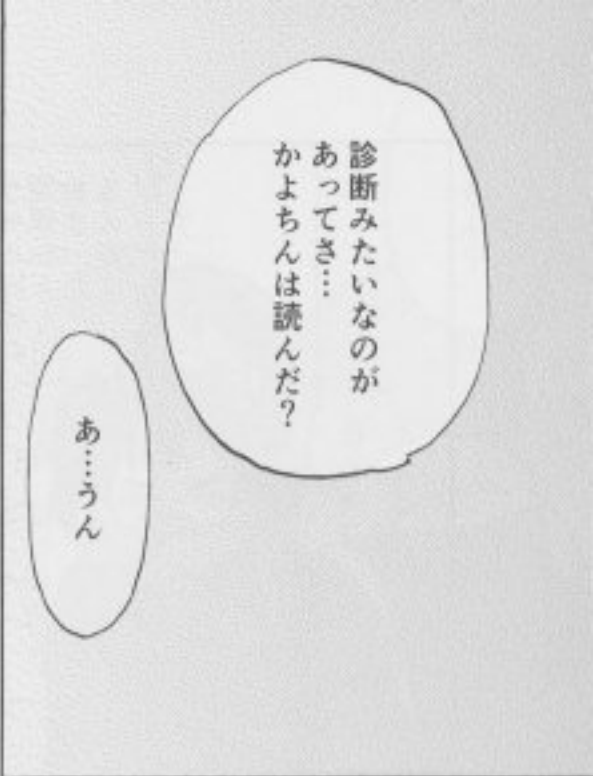 診断みたいなのが
あってさ…
かよちんは読んだ?
あ…うん